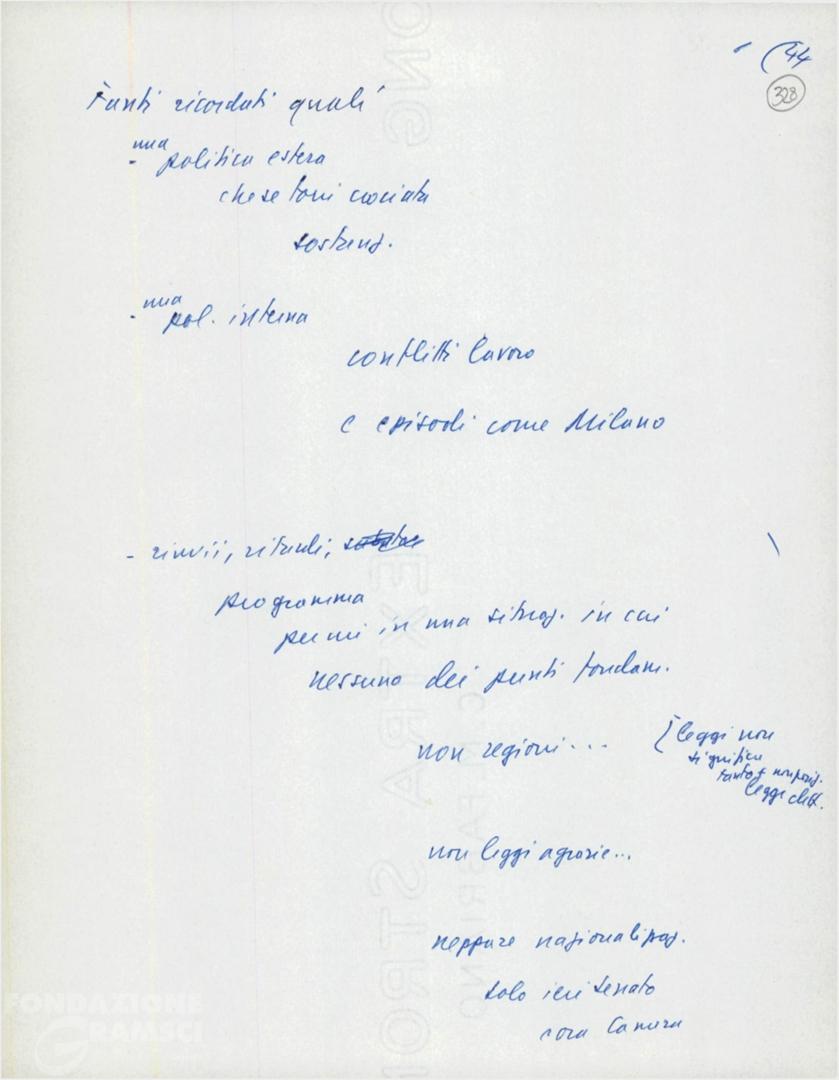 (44
328
Fanti ricordati quali
- una politica estera
che se toni crociata
sosteng.
- una pol. interna
conflitti lavoro
e episodi come Milano
- rinvii, ritardi,
programma
per cui in una situaz. in cui
nessuno dei punti fondam.
non regioni... [leggi non
significa
leggi elett.
non leggi agrarie...
neppure nazionalizzaz.
solo ieri Senato
ora Camera
FONDAZIONE
GRAMSCI
EXTRA STRONG
FABRIANO